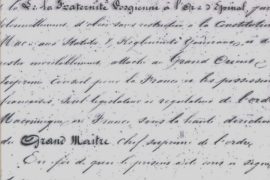 La Fraternité Vosgienne à l'Or∴ d'Épinal, jure
d'obéir sans restriction à la Constitution
Maç∴ aux Statuts & Règlements Généraux, à
rester inviolablement attaché au Grand Orient
Suprême Conseil pour la France et les possessions
françaises, seul législateur et régulateur de l'ordre
Maçonnique en France, sous la haute direction
du Grand Maître chef suprême de l'ordre,
En foi de quoi le présent